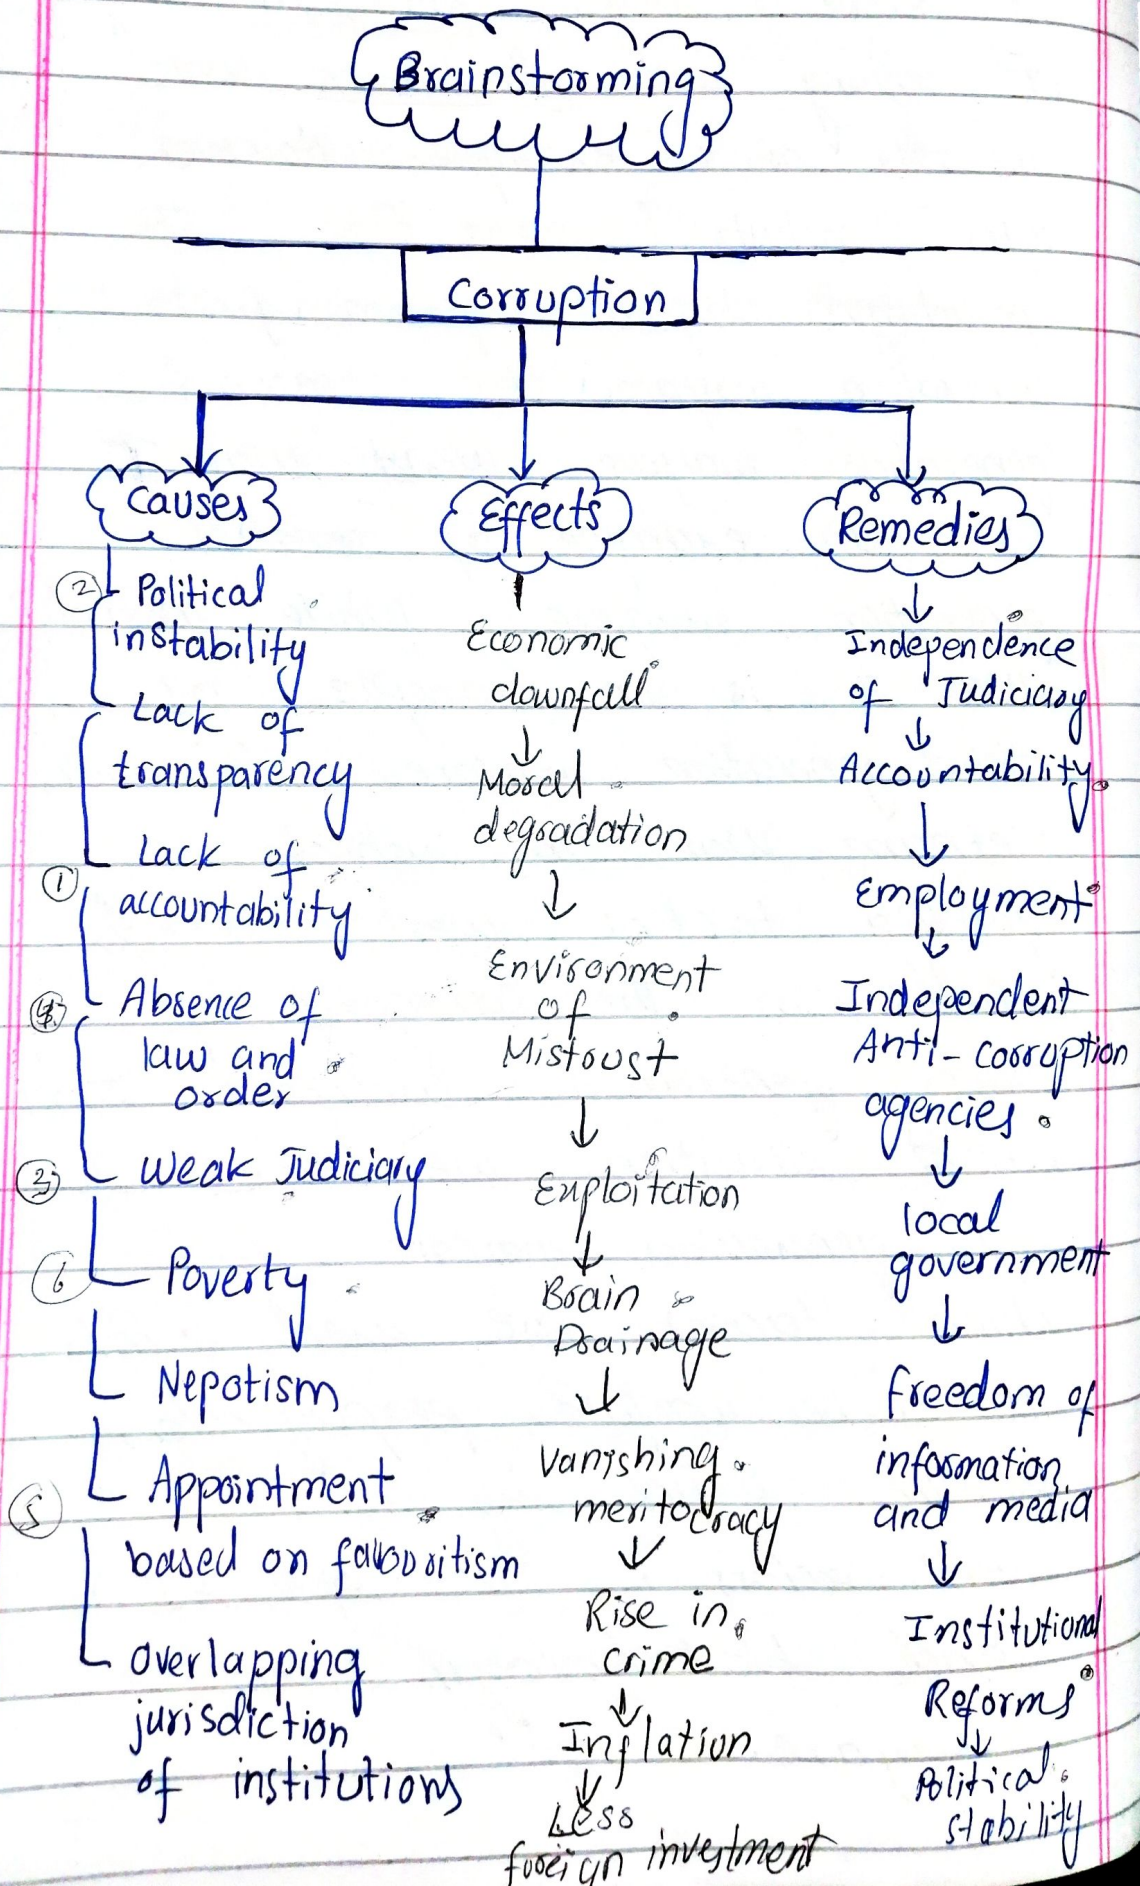 Brainstorming
Corruption
Causes
② Political
instability
Lack of
transparency
Lack of
① accountability
④ Absence of
law and
order
③ Weak Judiciary
⑥ Poverty
Nepotism
Appointment
⑤ based on favouritism
Overlapping
jurisdiction
of institutions
Effects
Economic
downfall
Moral
degradation
Environment
of
Mistrust
Exploitation
Brain
Drainage
Vanishing
meritocracy
Rise in
crime
Inflation
Less
foreign investment
Remedies
Independence
of Judiciary
Accountability
Employment
Independent
Anti-corruption
agencies.
local
government
freedom of
information
and media
Institutional
Reforms
Political
stability